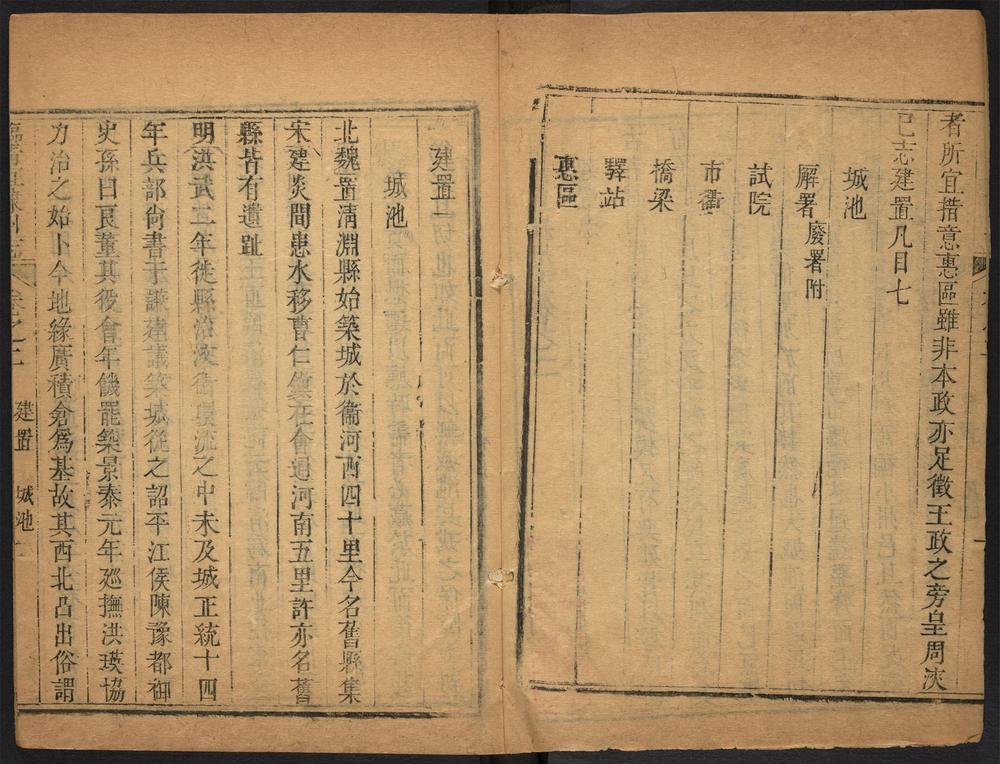 者所宜措意惠區雖非本政亦足徵王政之旁皇周浹
已志建置凡目七
城池
廨署廢署附
試院
市衢
橋梁
驛站
惠區
建置一
城池
北魏置清淵縣始築城於衞河西四十里今名舊縣集
宋建炎間患水移曹仁鎮在會通河南五里許亦名舊
縣皆有遺趾
明洪武二年徙縣治汶衞環流之中未及城正統十四
年兵部尚書于謙建議築城從之詔平江侯陳豫都御
史孫曰良董其役會年饑罷築景泰元年廵撫洪瑛協
力治之始卜今地緣廣積倉爲基故其西北凸出俗謂
臨清直隸州志 卷之二 建置 城池 一